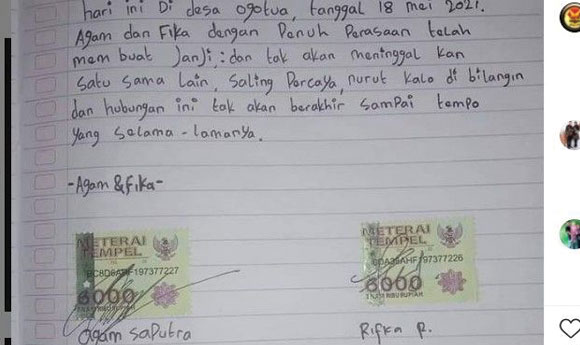 hari ini Di desa ogotua, tanggal 18 mei 2021.
Agam dan Fika dengan Penuh Perasaan telah
mem buat Janji : dan tak akan meninggal kan
satu sama lain, saling Percaya, nurut kalo di bilangin
dan hubungan ini tak akan berakhir sampai tempo
yang selama - lamanya.
-Agam & Fika-
METERAI TEMPEL
197377227
6000
ENAM RIBU RUPIAH
Agam Saputra
METERAI TEMPEL
197377226
6000
ENAM RIBU RUPIAH
Rifka R.